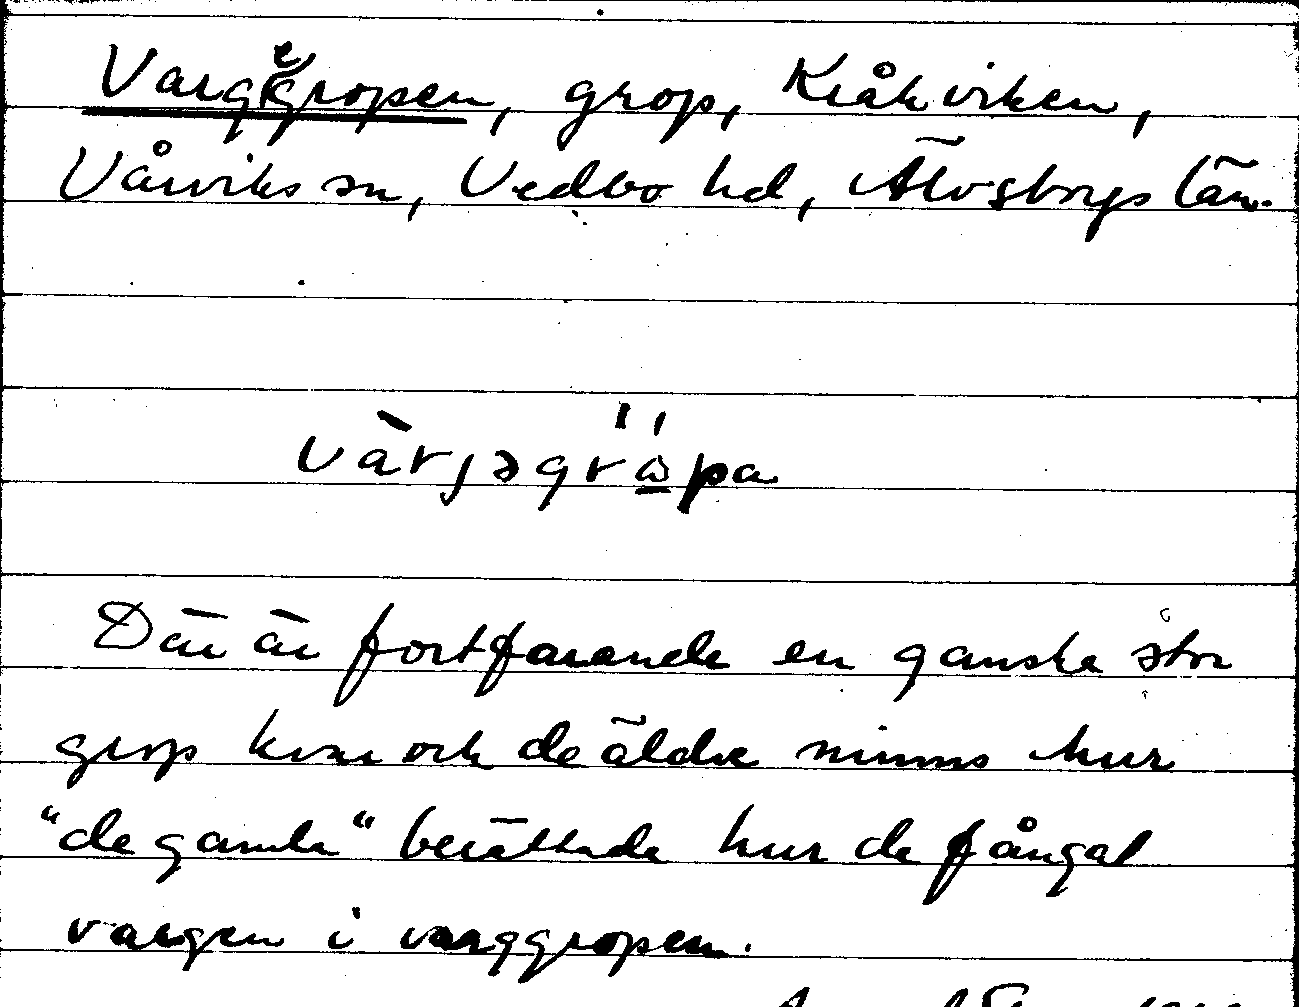 Vargegropen, grop, Kråkviken,
Vårviks sn, Vedbo hd, Älvsborgs län.
vàrjəgrɷ̀pa
Där är fortfarande en ganska stor
grop kvar och de äldre minns hur
"de gamla" berättade hur de fångat
vargen i varggropen.